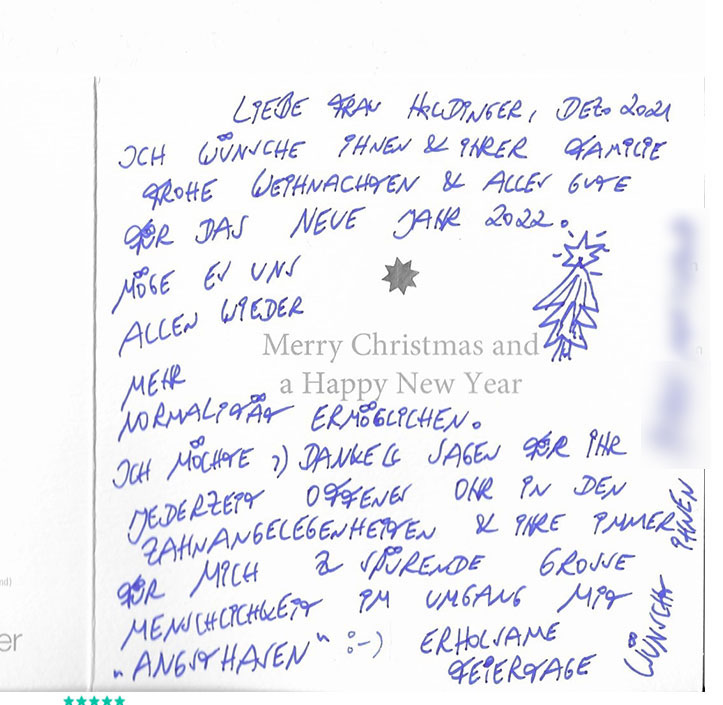 LIEBE FRAU HOLDINGER, DEZ. 2021
ICH WÜNSCHE IHNEN & IHRER FAMILIE
FROHE WEIHNACHTEN & ALLES GUTE
FÜR DAS NEUE JAHR 2022.
MÖGE ES UNS
ALLEN WIEDER
MEHR
NORMALITÄT ERMÖGLICHEN.
Merry Christmas and
a Happy New Year
ICH MÖCHTE DANKE SAGEN FÜR IHR
JEDERZEIT OFFENES OHR IN DEN
ZAHNANGELEGENHEITEN & IHRE IMMER
FÜR MICH Z SPÜRENDE GROSSE
MENSCHLICHKEIT IM UMGANG MIT
„ANGSTHASEN" :-) ERHOLSAME
FEIERTAGE
WÜNSCHT IHNEN
nd)
er